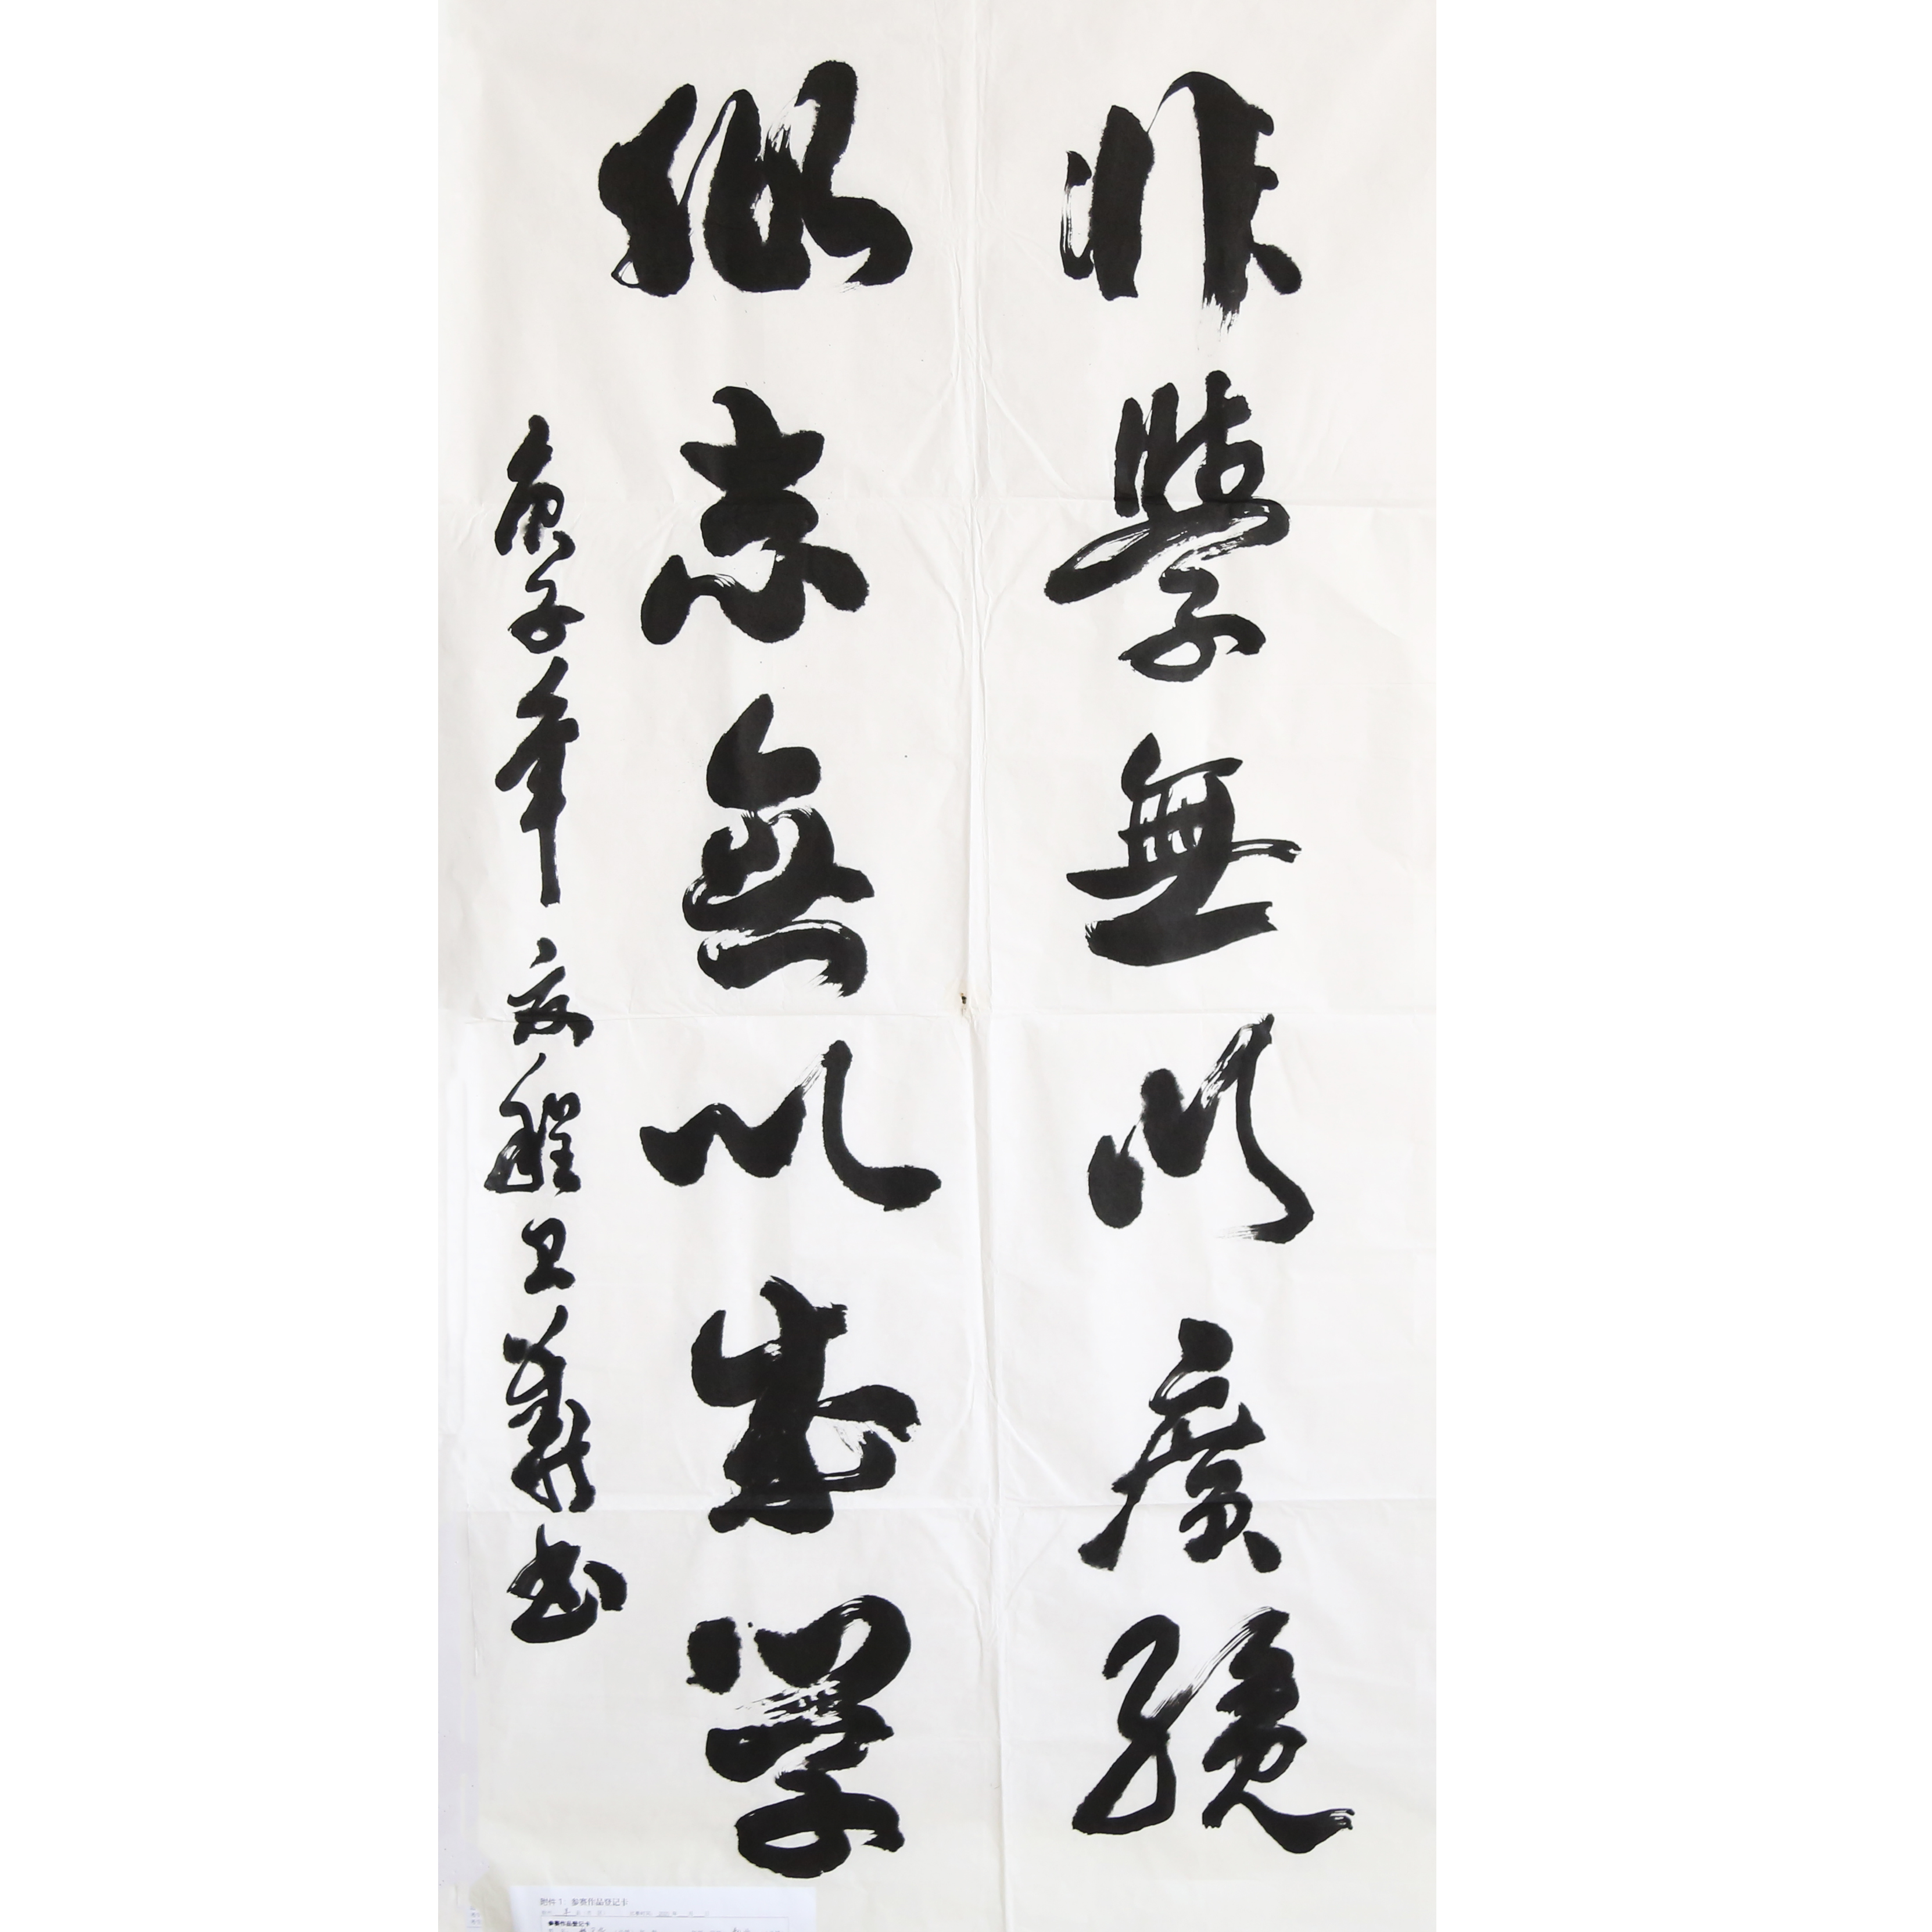 非學無以廣續
似志無以成学
庚子年 文程卫華书
附件1:参赛作品登记卡
参赛作品登记卡